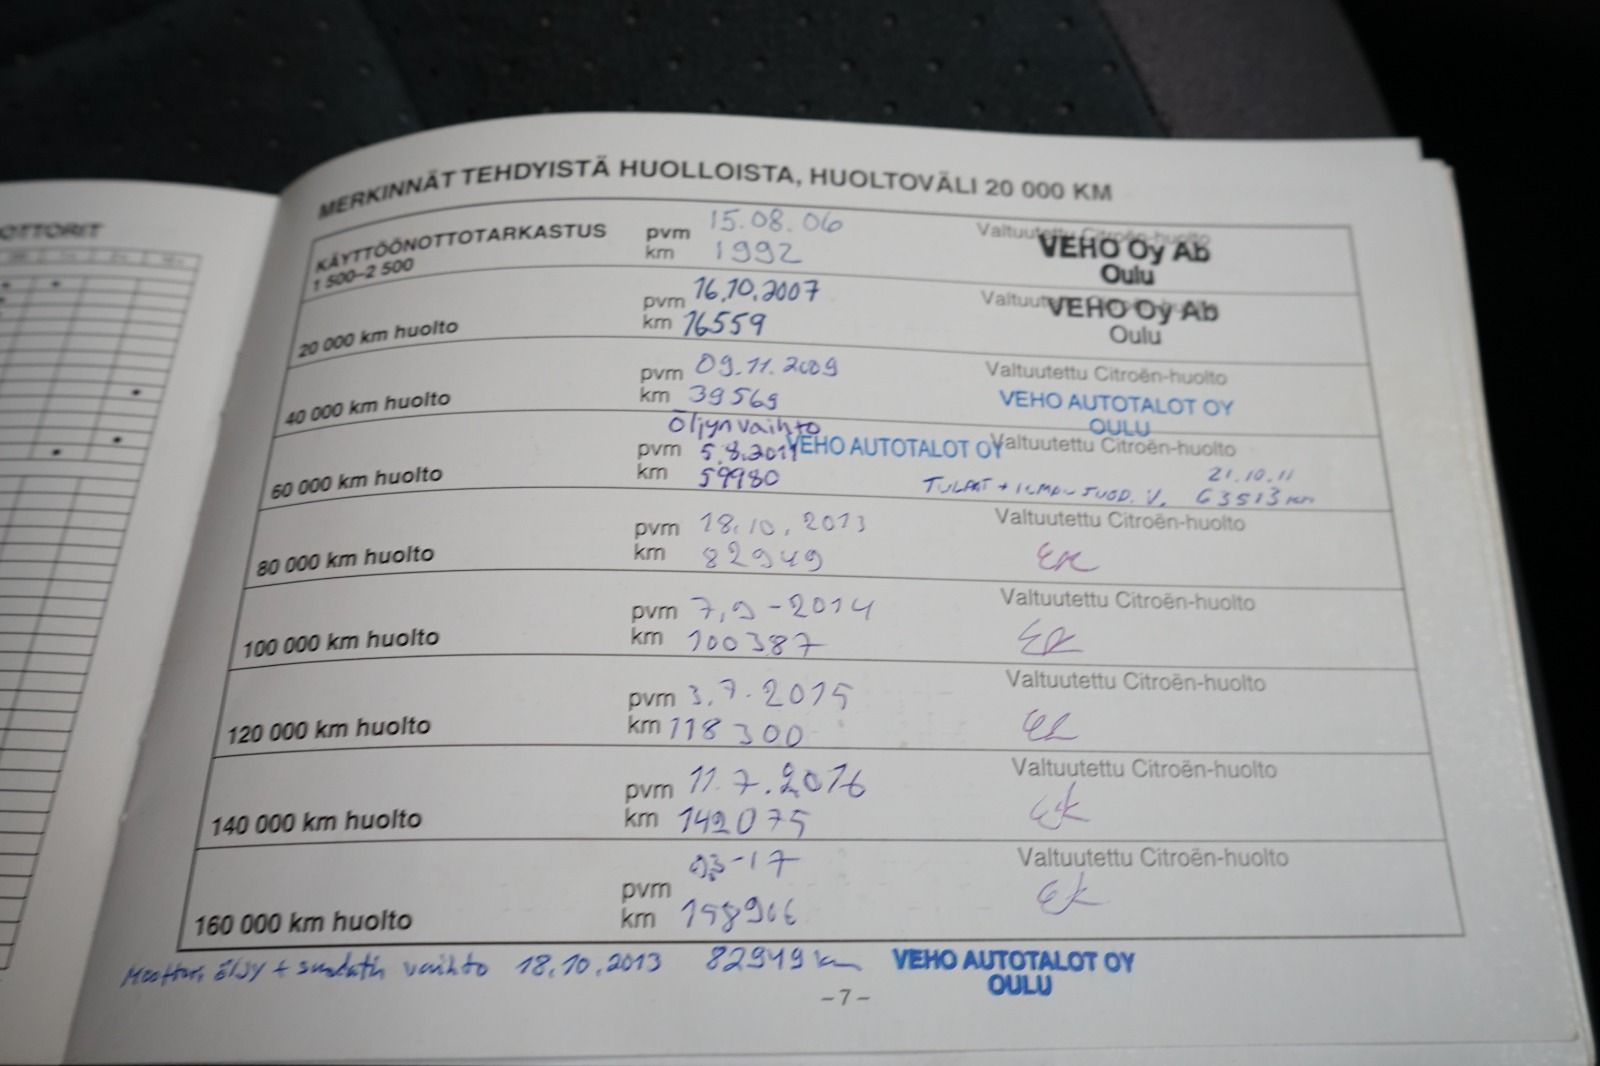 OTTORIT
MERKINNÄT TEHDYISTÄ HUOLLOISTA, HUOLTOVÄLI 20 000 KM
KÄYTTÖÖNOTTOTARKASTUS
1 500–2 500
pvm 15.08.06
km 1992
Valtuutettu Citroën-huolto
VEHO Oy Ab
Oulu
20 000 km huolto
pvm 16.10.2007
km 16559
VEHO Oy Ab
Oulu
40 000 km huolto
pvm 09.11.2009
km 39569
Valtuutettu Citroën-huolto
VEHO AUTOTALOT OY
OULU
Öljynvaihto
60 000 km huolto
pvm 5.8.2011
km 59980
VEHO AUTOTALOT OY
Valtuutettu Citroën-huolto
21.10.11
TULPAT + ILMANSUOD. V. 63513 km
80 000 km huolto
pvm 18.10.2013
km 82949
Valtuutettu Citroën-huolto
100 000 km huolto
pvm 7,9-2014
km 100387
Valtuutettu Citroën-huolto
120 000 km huolto
pvm 3.7.2015
km 118300
Valtuutettu Citroën-huolto
140 000 km huolto
pvm 11.7.2016
km 142075
Valtuutettu Citroën-huolto
160 000 km huolto
pvm
km 158906
Valtuutettu Citroën-huolto
öljy + vaihto 18.10.2013 82949 km VEHO AUTOTALOT OY
OULU
–7–